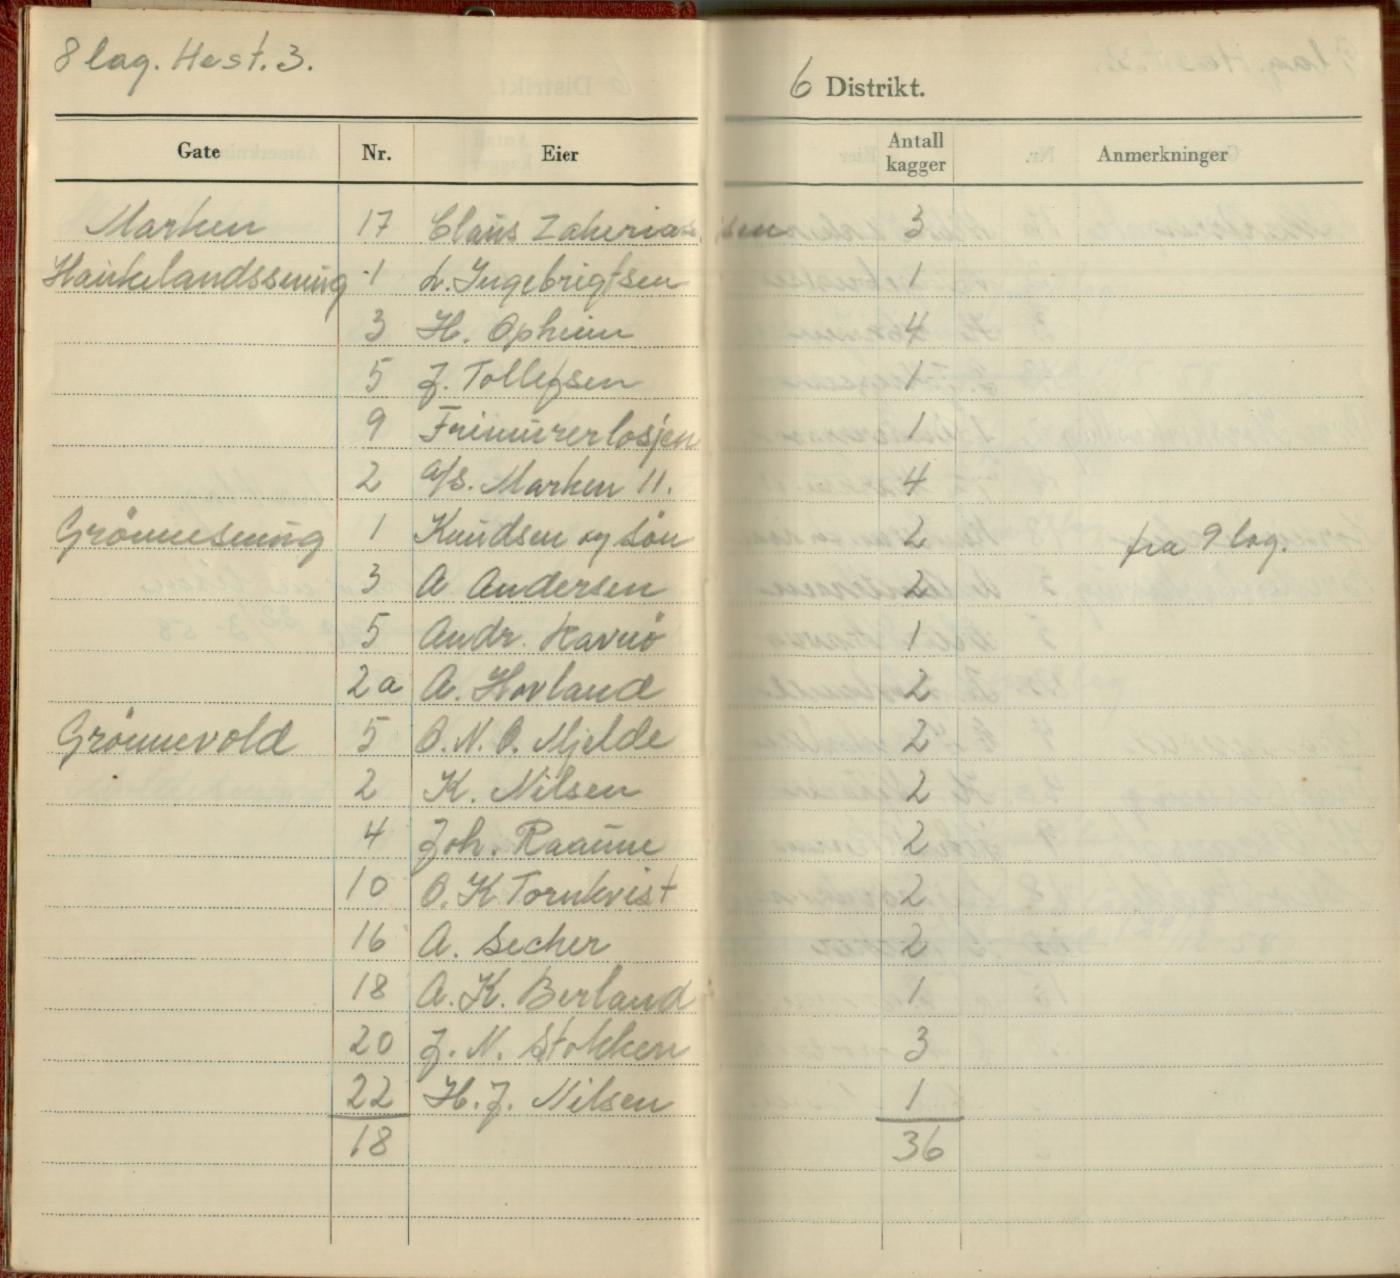 8 lag. Hest. 3.
6 Distrikt.
Gate Nr. Eier Antall kagger Anmerkninger
Marken 17 Claus Zakariassen 3
Haukelandssmug 1 L. Ingebrigtsen 1
3 H. Opheim 4
5 J. Tollefsen 1
9 Frimurerlosjen 1
2 a/s. Marken 11. 4
Grönnesmug 1 Knudsen og Sön 2 fra 9 lag.
3 A Andersen 2
5 Andr. Havnö 1
2a A. Hovland 2
Grönnevold 5 O. N. O. Mjelde 2
2 K. Nilsen 2
4 Joh. Raaune 2
10 O. K Tornkvist 2
16 A. Secher 2
18 A. K. Berland 1
20 J. N. Stokken 3
22 H. J. Nilsen 1
18 36